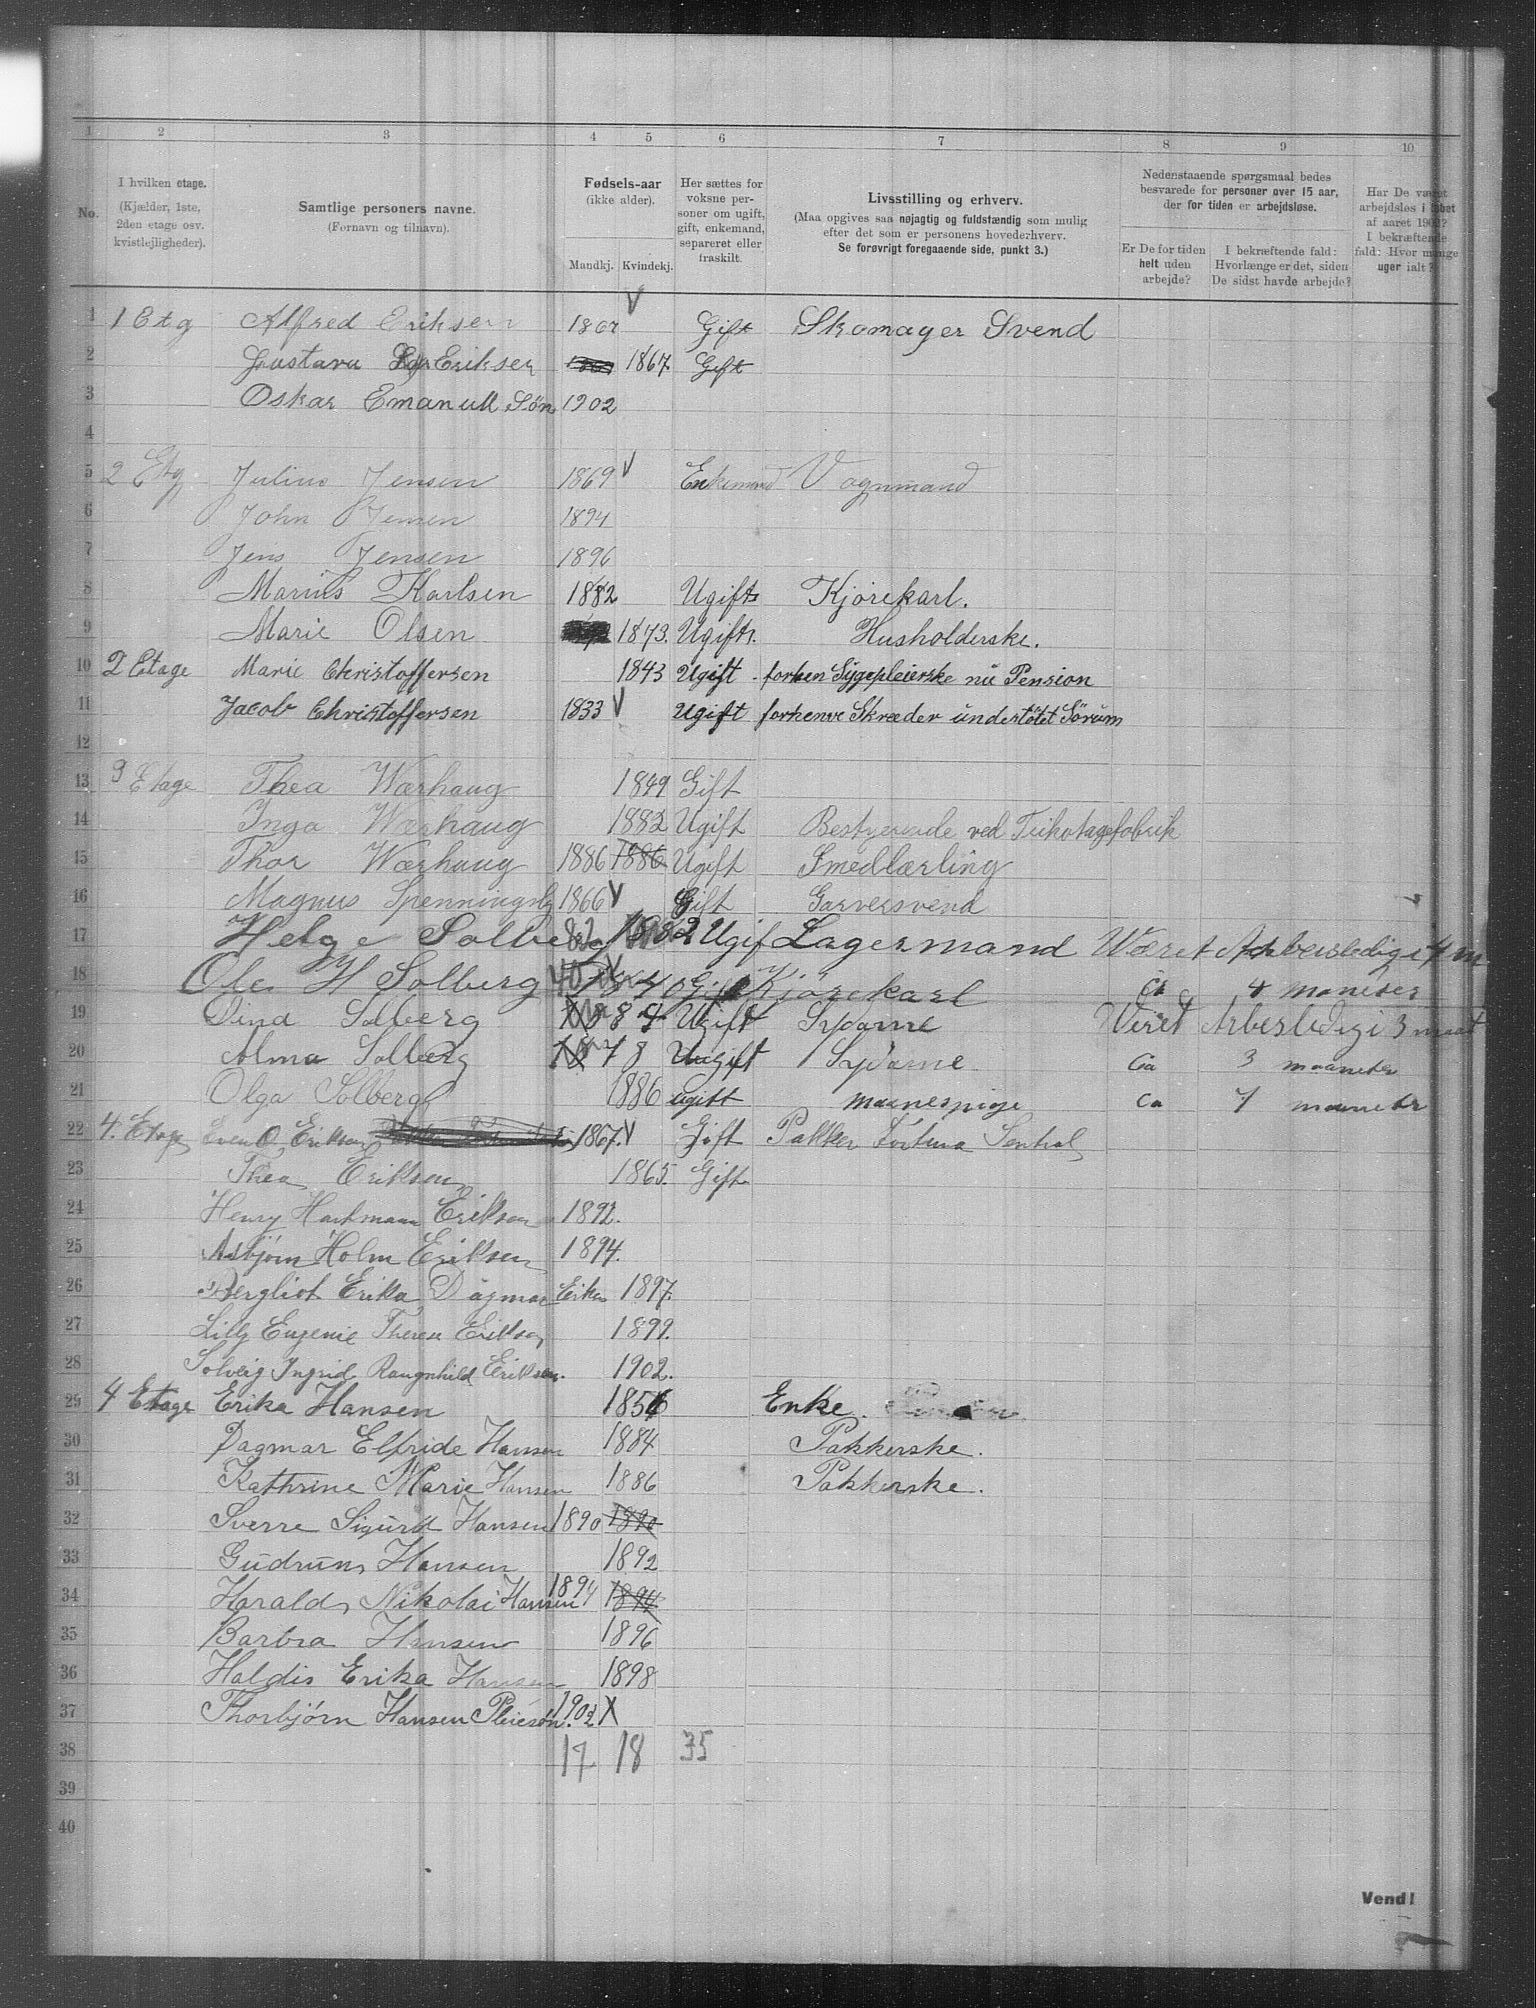 1 2 3 4 5 6 7 8 9 10
No.
I hvilken etage.
(Kjælder, 1ste,
2den etage osv.
kvistlejligheder).
Samtlige personers navne.
(Fornavn og tilnavn).
Fødsels-aar
(ikke alder).
Mandkj. Kvindekj.
Her sættes for
voksne per-
soner om ugift,
gift, enkemand,
separeret eller
fraskilt.
Livsstilling og erhverv.
(Maa opgives saa nøjagtig og fuldstændig som mulig
efter det som er personens hovederhverv.
Se forøvrigt foregaaende side, punkt 3.)
Nedenstaaende spørgsmaal bedes
besvarede for personer over 15 aar,
der for tiden er arbejdsløse.
Er De for tiden
helt uden
arbejde?
I bekræftende fald:
Hvorlænge er det, siden
De sidst havde arbejde?
Har De været
arbejdsløs i løbet
af aaret 1902?
I bekræftende
fald: Hvor mange
uger ialt?
1 1 Etg Alfred Eriksen 1867 Gift Skomager Svend
2 Gustava Eriksen 1867 Gift
3 Oskar Emanuell Søn 1902
4
5 2 Etg Julius Jensen 1869 Enkemand Vognmand
6 John Jensen 1894
7 Jens Jensen 1896
8 Marius Karlsen 1882 Ugift Kjørekarl.
9 Marie Olsen 1873. Ugift. Husholderske.
10 2 Etage Marie Christoffersen 1843 Ugift forhen Sygepleierske nu Pension
11 Jacob Christoffersen 1833 Ugift forhenve Skræder understøtet Sørum
12
13 3 Etage Thea Wærhaug 1849 Gift
14 Inga Wærhaug 1882 Ugift Bestyerende ved Trikotagefabrik
15 Thor Wærhaug 1886 1886 Ugift Smedlærling
16 Magnus Spenningsby 1866 Gift Garversvend
17 Helge Solberg 82 1882 Ugif Lagermand Været Arbeisledig i 4 m
18 Ole H Solberg 40 1840 Gift Kjørekarl Ca 4 maaneter
19 Dina Solberg 87 Ugift Sydame Veret Arbesledig i 3 maat
20 Alma Solberg 1878 Uugift Sydame Ca 3 maaneter
21 Olga Solberg 1886 ugift maanespige Ca 7 maaneter
22 4. Etage Even O Erikson 1867. Gift Pakker Fortuna Sentral
23 Thea Eriksen 1865. Gift
24 Henry Hartmann Erikson 1892.
25 Asbjørn Holm Eriksen 1894.
26 Bergliot Erika Dagmar Eriks 1897.
27 Lilly Eugenie Theresa Erikson 1899.
28 Solveig Ingrid Raugnhild Eriksen. 1902.
29 4 Etage Erika Hansen 1856 Enke.
30 Dagmar Elfride Hansen 1884 Pakkerske.
31 Kathrine Marie Hansen 1886 Pakkerske.
32 Sverre Sigurd Hansen 1890 1890
33 Gudrun Hansen 1892
34 Harald Nikolai Hansen 1894 1894
35 Barbra Hansen 1896
36 Haldis Erika Hansen 1898
37 Thorbjørn Hansen Pleiesøn. 1902
38 17 18 35
39
40
Vend!